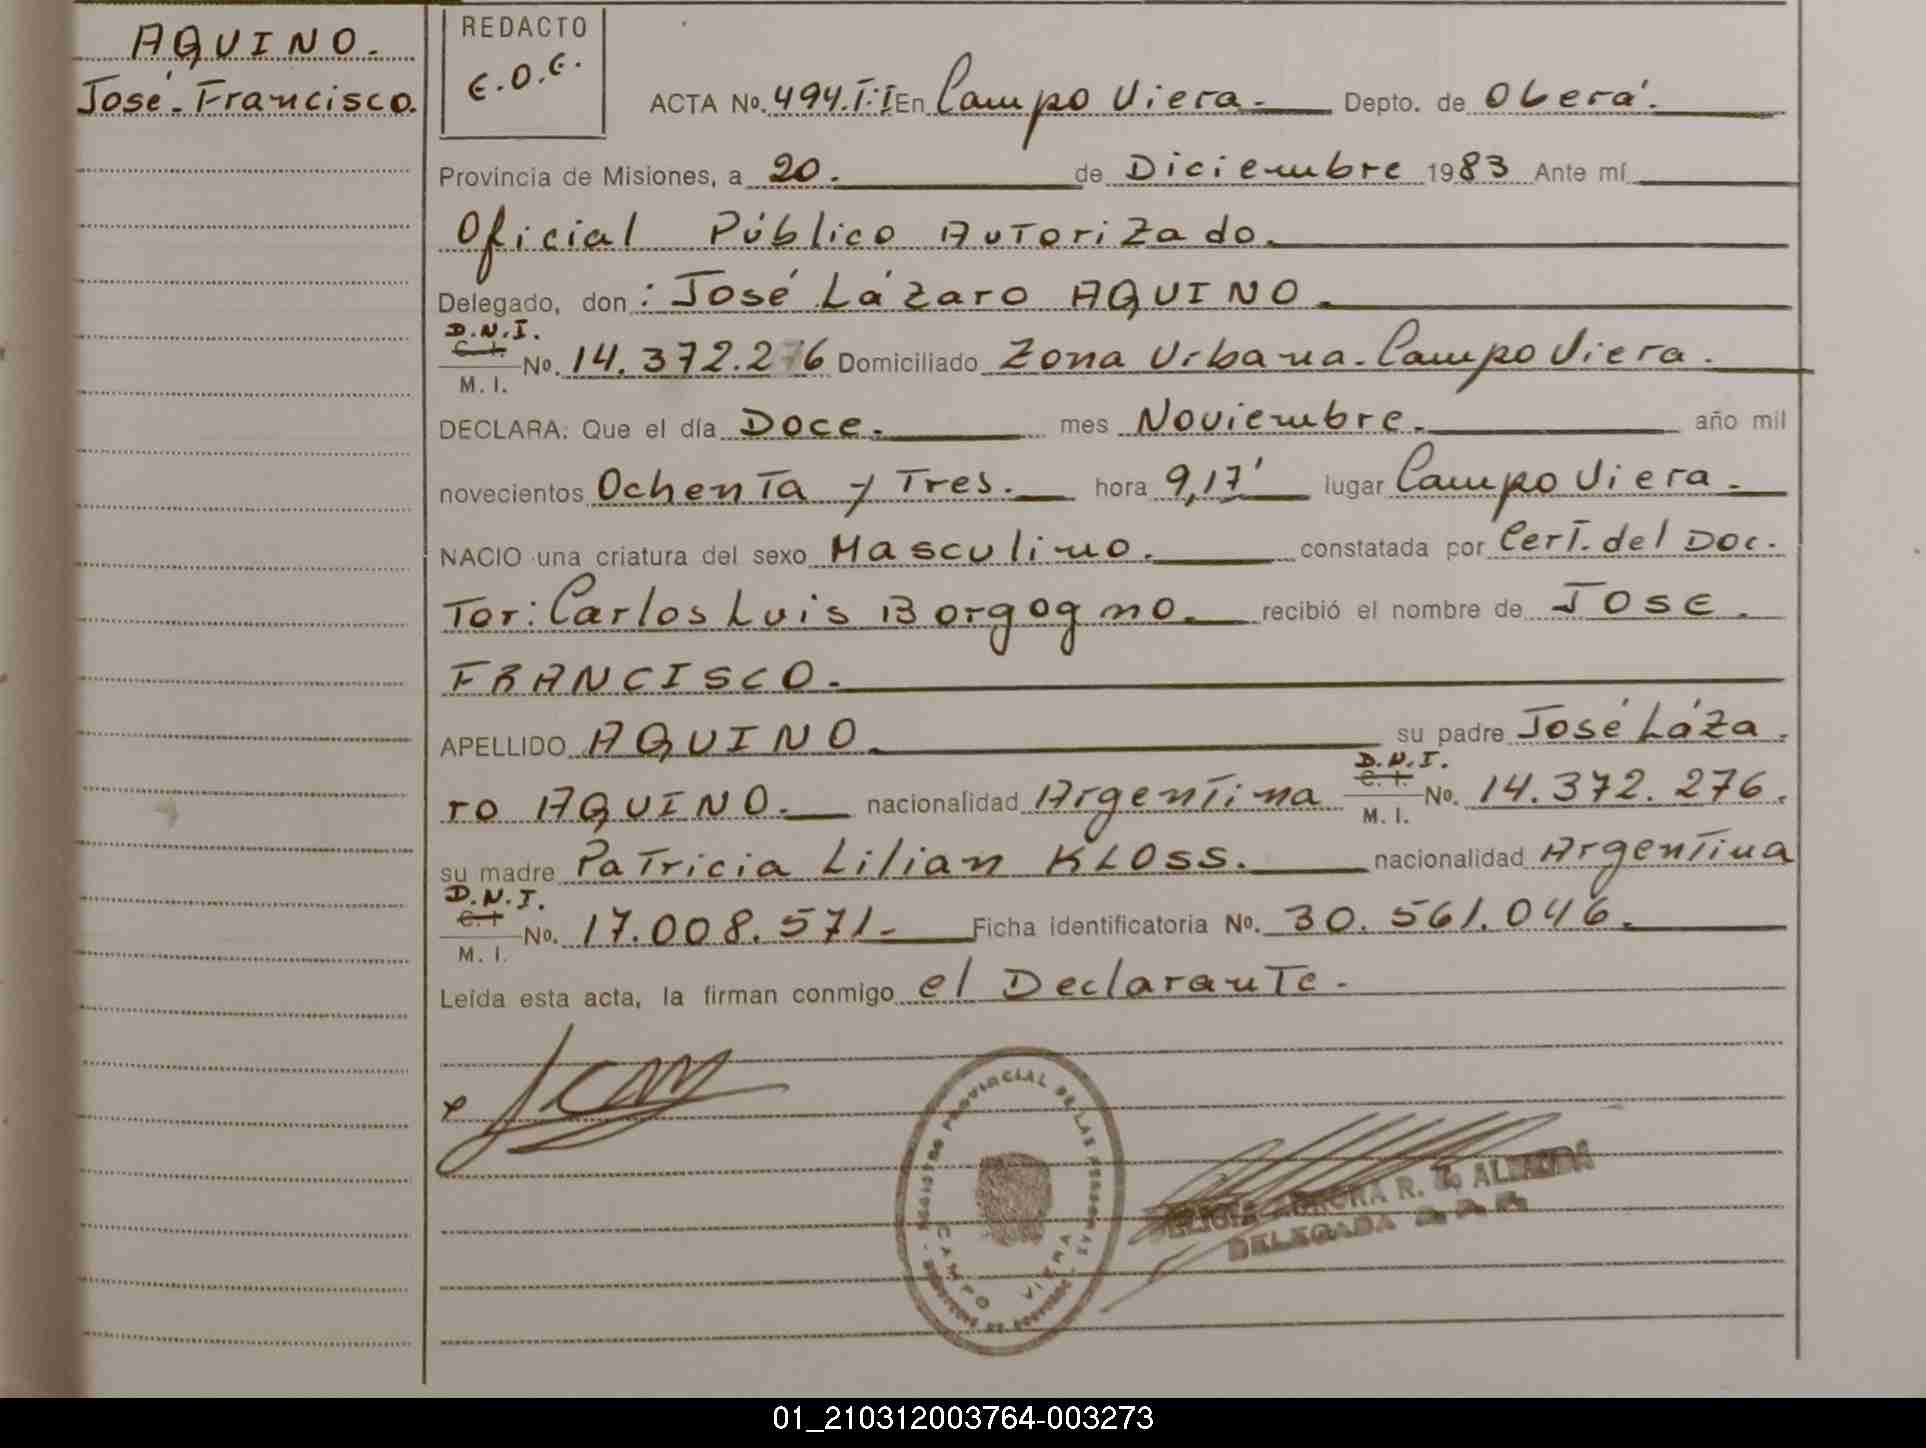 AQUINO.
José-Francisco.
REDACTO
E.O.E.
ACTA No. 494.T:I En Campo Viera. Depto. de Oberá.
Provincia de Misiones, a 20. de Diciembre 1983 Ante mí
Oficial Público Autorizado.
Delegado, don: José Lázaro AQUINO.
D.N.I.
C. I.
M. I.
No. 14.372.276 Domiciliado Zona Urbana. Campo Viera.
DECLARA: Que el día Doce. mes Noviembre. año mil
novecientos Ochenta y Tres. hora 9,17' lugar Campo Viera.
NACIO una criatura del sexo Masculino. constatada por Cert. del Doc.
tor: Carlos Luis Borgogno. recibió el nombre de JOSE.
FRANCISCO.
APELLIDO AQUINO su padre José Láza
D.N.I.
C. I.
ro AQUINO. nacionalidad Argentina No. 14.372.276.
M. I.
su madre Patricia Lilian KLOSS. nacionalidad Argentina
D.N.I.
C. I
No. 17.008.571. Ficha identificatoria No. 30.561.046.
M. I.
Leída esta acta, la firman conmigo el Declarante.
REGISTRO PROVINCIAL DE LAS PERSONAS
CAMPO VIERA
R.
DELEGADA
01_210312003764-003273